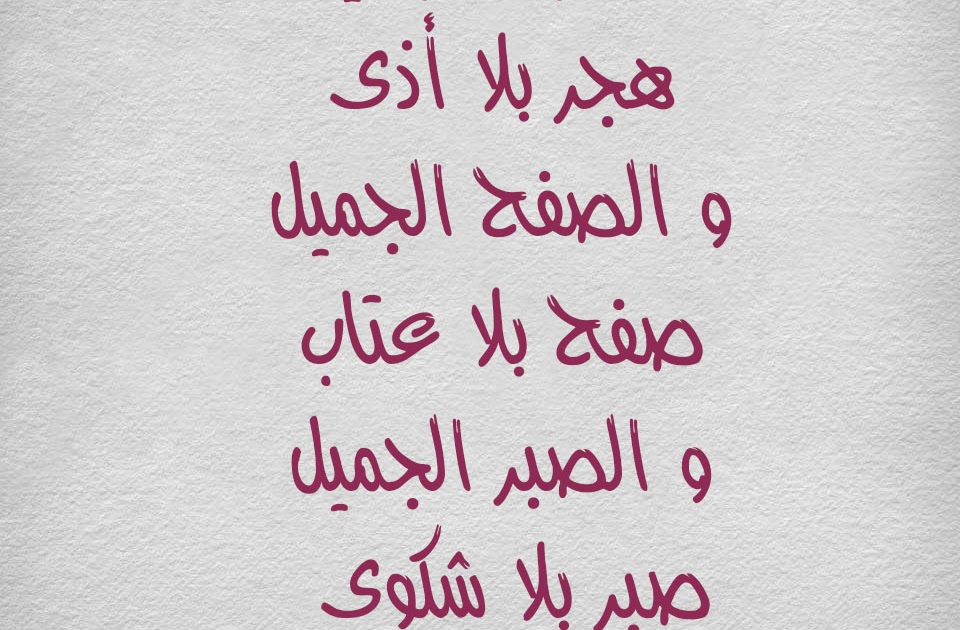 هجر بلا أذى
و الصفح الجميل
صفح بلا عتاب
و الصبر الجميل
صبر بلا شكوى